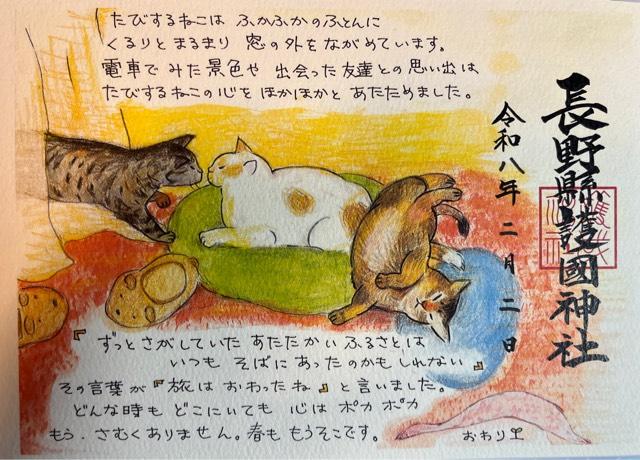 たびするねこは ふかふかのふとんに
くるりとまるまり 窓の外をながめています。
電車でみた景色や 出会った友達との思い出は
たびするねこの心を ほかほかと あたためました。
長野縣護國神社
令和八年 二月二日
『ずっとさがしていた あたたかいふるさとは
いつも そばにあったのかもしれない』
その言葉が『旅はおわったね』と言いました。
どんな時も どこにいても 心は ポカポカ
もう、さむくありません。春も もうそこです。
おわり